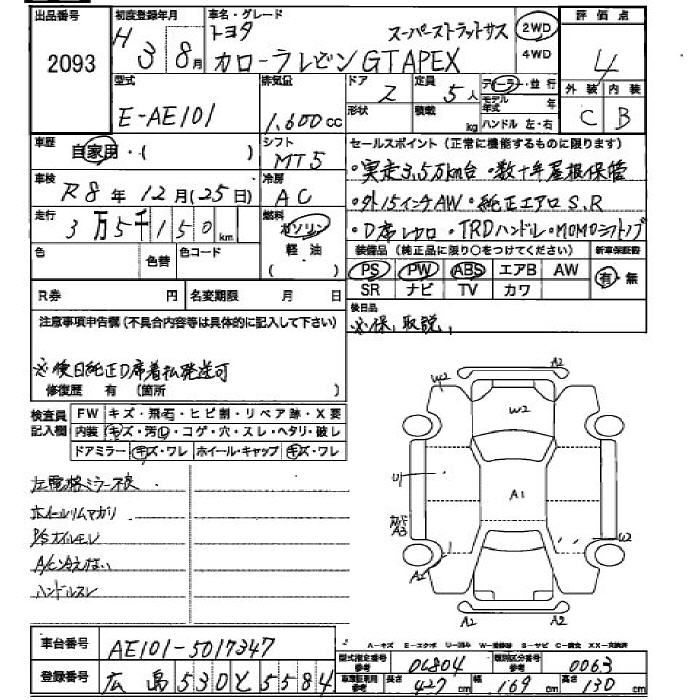 出品番号
2093
初度登録年月
H 3 8月
車名・グレード
トヨタ スーパーストラットサス
カローラレビン GT APEX
2WD
4WD
評価点
4
外装 内装
C B
型式
E-AE101
排気量
1,600cc
ドア
2
形状
定員
5人
積載
kg
ディーラー・並行
モデル年式 年
ハンドル 左・右
車歴
自家用・( )
シフト
MT5
車検
R8年12月(25日)
冷房
AC
走行
3万5千150km
燃料
ガソリン
軽油
( )
色
色替
色コード
R券 円
名変期限 月 日
セールスポイント(正常に機能するものに限ります)
・実走3.5万km台・数十年屋根保管
・外15インチAW・純正エアロ S,R
・D席レカロ・TRDハンドル・MOMOシフトノブ
装備品(純正品に限り○をつけてください)
新車保証書
PS PW ABS エアB AW
SR ナビ TV カワ
有・無
後日品
※保,取説,
注意事項申告欄(不具合内容等は具体的に記入して下さい)
※後日純正D席着払発送可
修復歴 有 (箇所 )
検査員記入欄
FW キズ・飛石・ヒビ割・リペア跡・X要
内装 キズ・汚レ・コゲ・穴・スレ・ヘタリ・破レ
ドアミラー キズ・ワレ ホイール・キャップ キズ・ワレ
左電格ミラー不良
ホイールリムマガリ
P/Sオイルモレ
A/Cひえない
ハンドルスレ
A2
W2
W2
A2
U1
A1
A3
W2
A2
A2
A2
車台番号
AE101-5017347
登録番号
広島530と5584
A-キズ E-エクボ U-凹み W-補修跡 S-サビ C-腐食 XX-交換済
型式指定番号
参考
06804
類別区分番号
参考
0063
車庫証明用
参考
長さ 427cm
幅 169cm
高さ 130cm